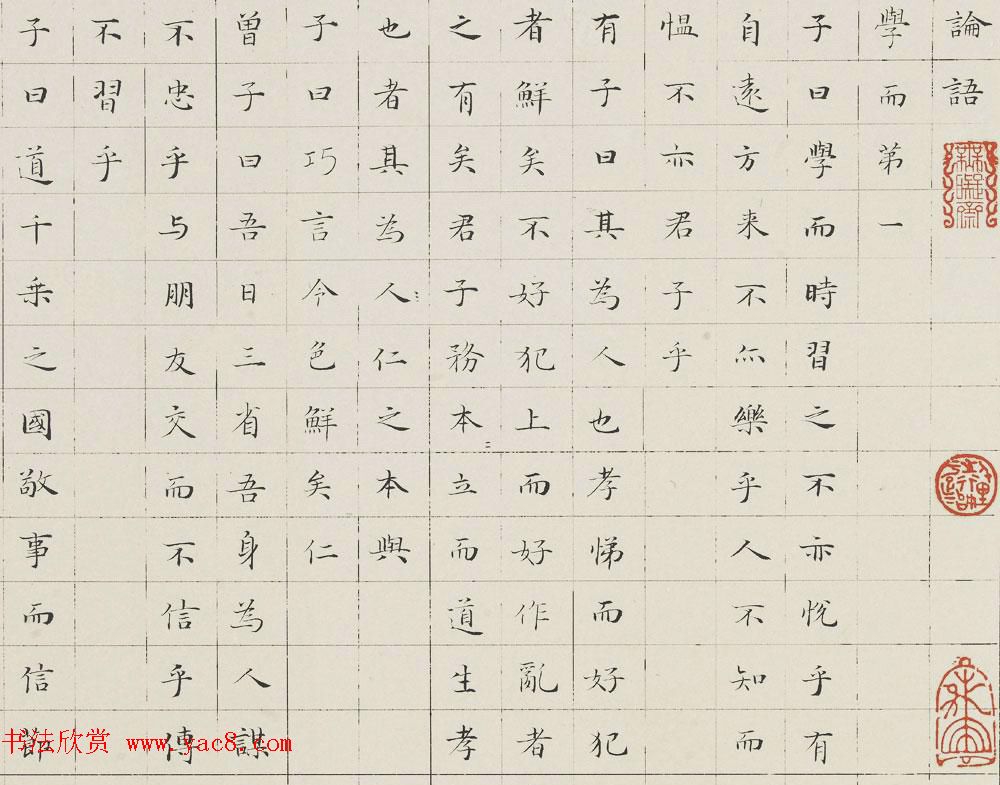 論語
學而第一
子曰學而時習之不亦悅乎有
自遠方来不亦樂乎人不知而
愠不亦君子乎
有子曰其為人也孝悌而好犯
者鮮矣不好犯上而好作亂者
之有矣君子務本立而道生孝
也者其為人仁之本與
子曰巧言令色鮮矣仁
曾子曰吾日三省吾身為人謀
不忠乎与朋友交而不信乎傳
不習乎
子曰道千乘之國敬事而信節
书法欣赏 www.yac8.com